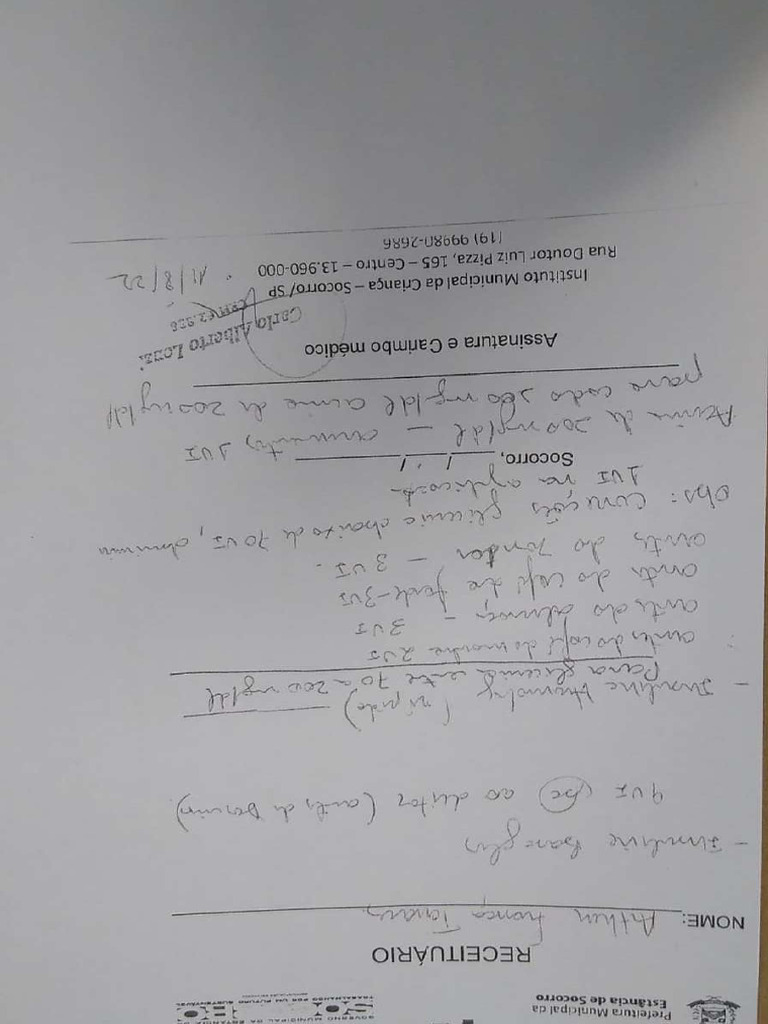 Prefeitura Municipal da
Estância de Socorro
GOVERNO MUNICIPAL DA ESTÂNCIA DE
SOCORRO
TRABALHANDO POR UM FUTURO SUSTENTÁVEL
RECEITUÁRIO
NOME: Arthur França Tavares
- Insulina Basaglar
4 UI (SC) ao deitar (antes de Dormir)
- Insulina Humalog (rápida)
Para glicemia entre 70 a 200 mg/dl
antes do café da manhã 2 UI
antes do almoço - 3 UI
antes do café da tarde - 3 UI
antes do Jantar - 3 UI.
Obs: Correções glicemia abaixo de 70 UI, diminuir
1 UI na aplicação
Socorro, / /
Acima de 200 mg/dl - aumentar 1 UI
para cada mg/dl acima de 200 mg/dl
Assinatura e Carimbo médico
Carlo Alberto
Instituto Municipal da Criança – Socorro/SP
Rua Doutor Luiz Pizza, 165 – Centro – 13.960-000
(19) 99980-2686
11/8/22